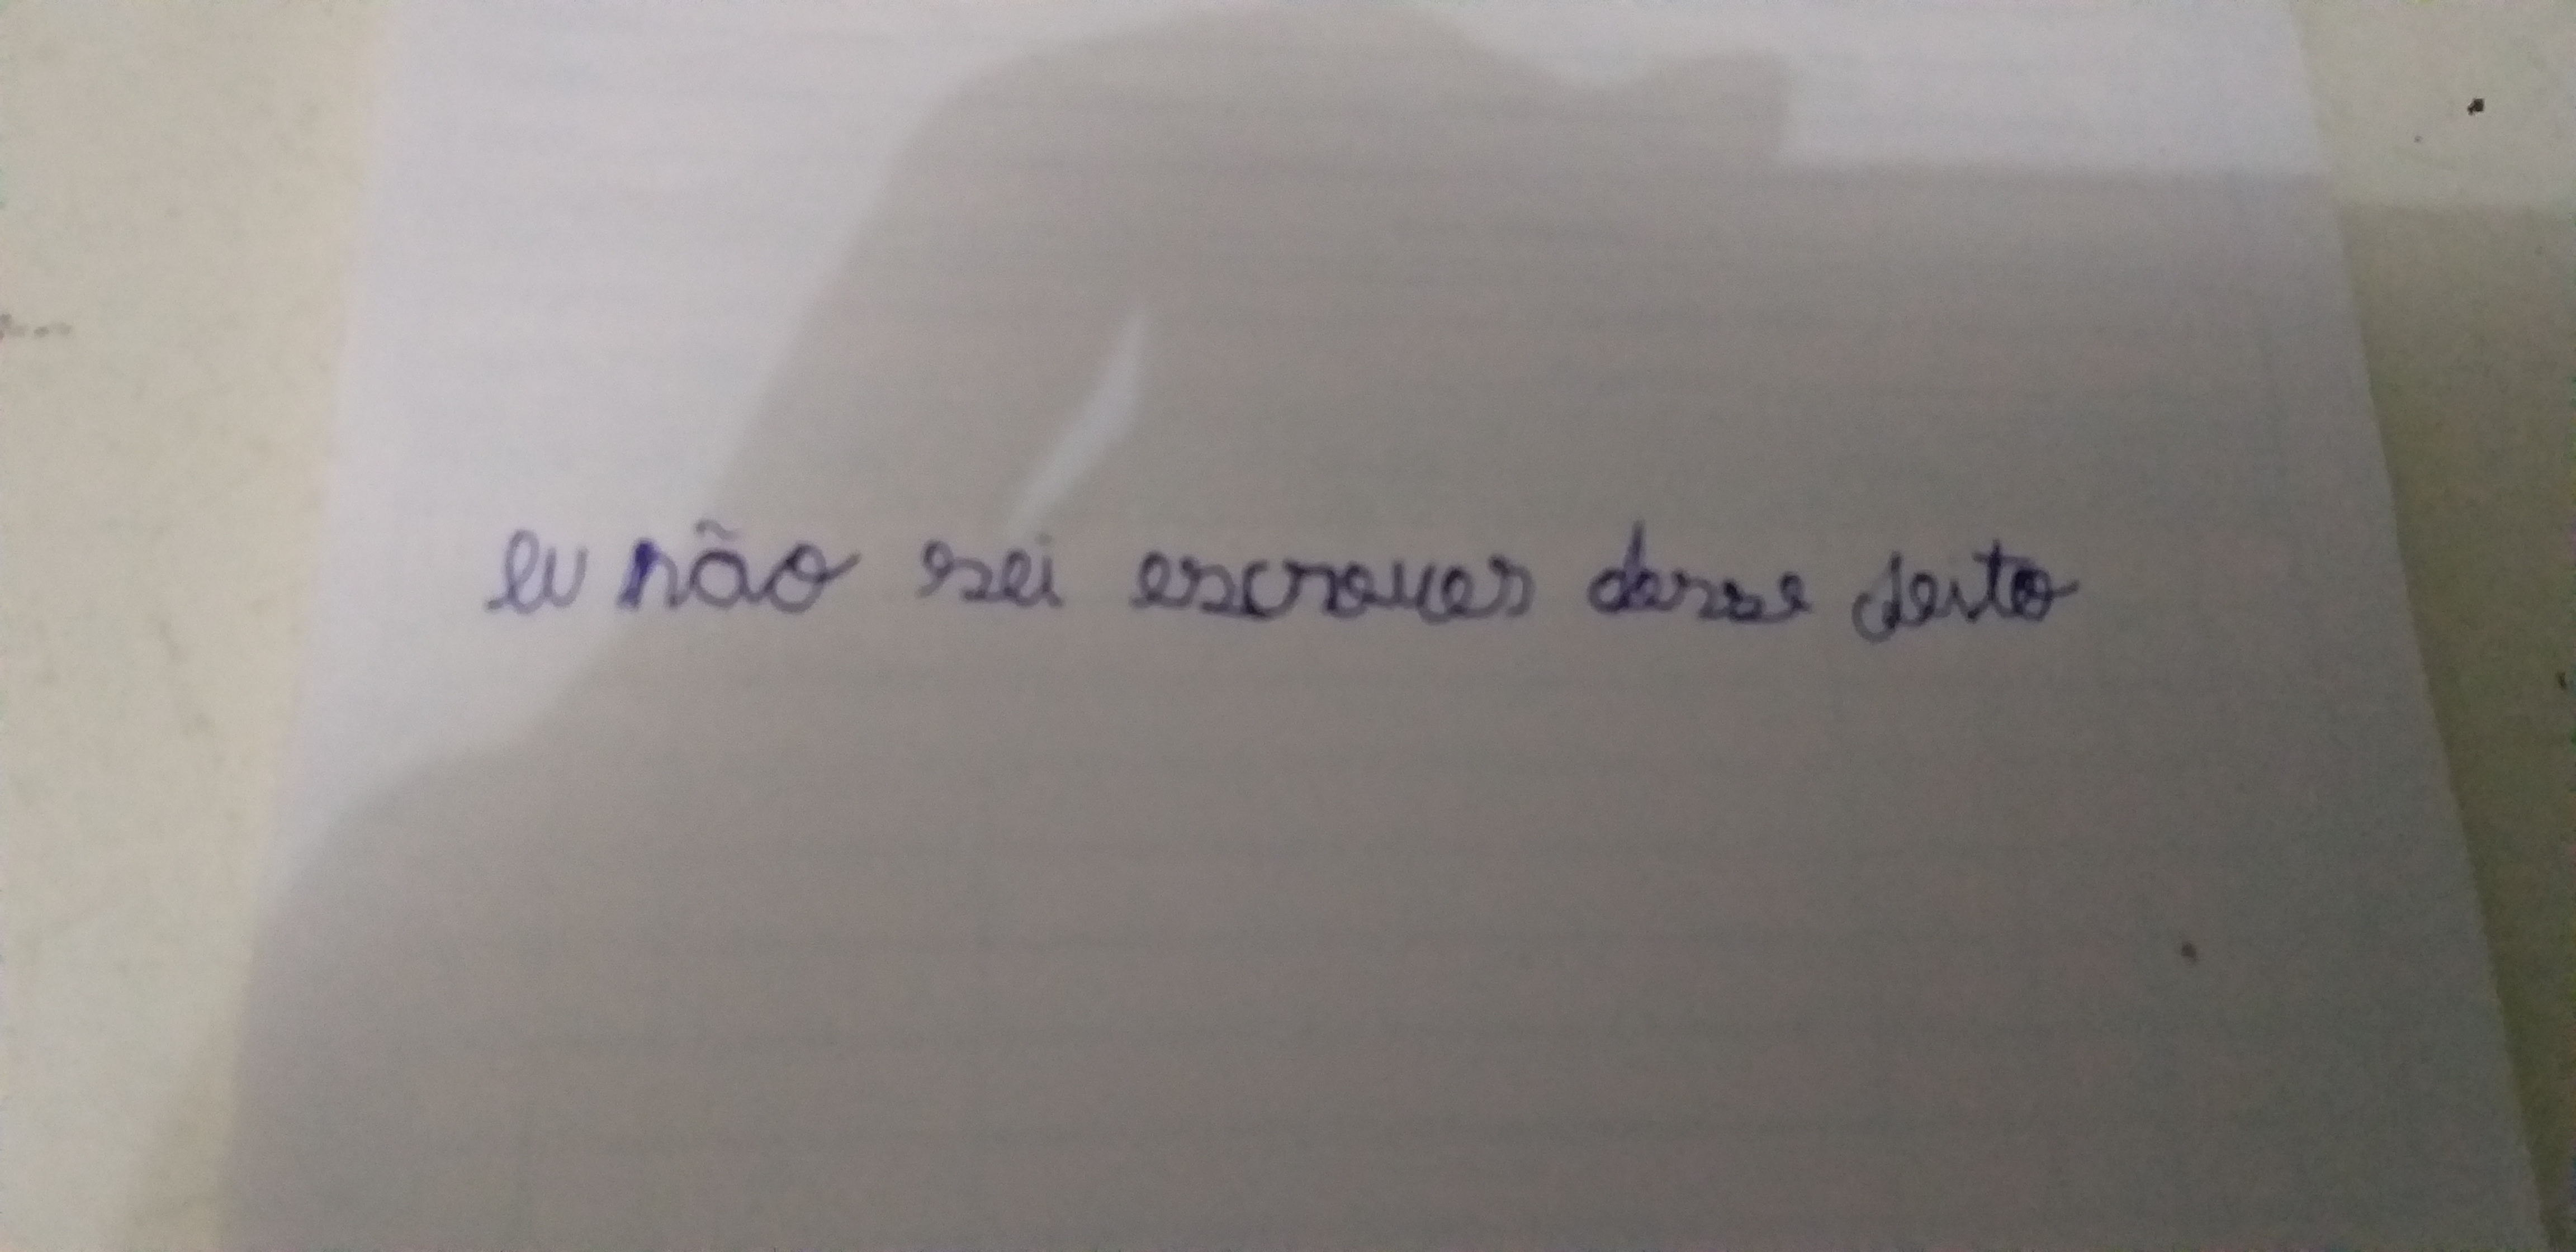 eu não sei escrever desse jeito